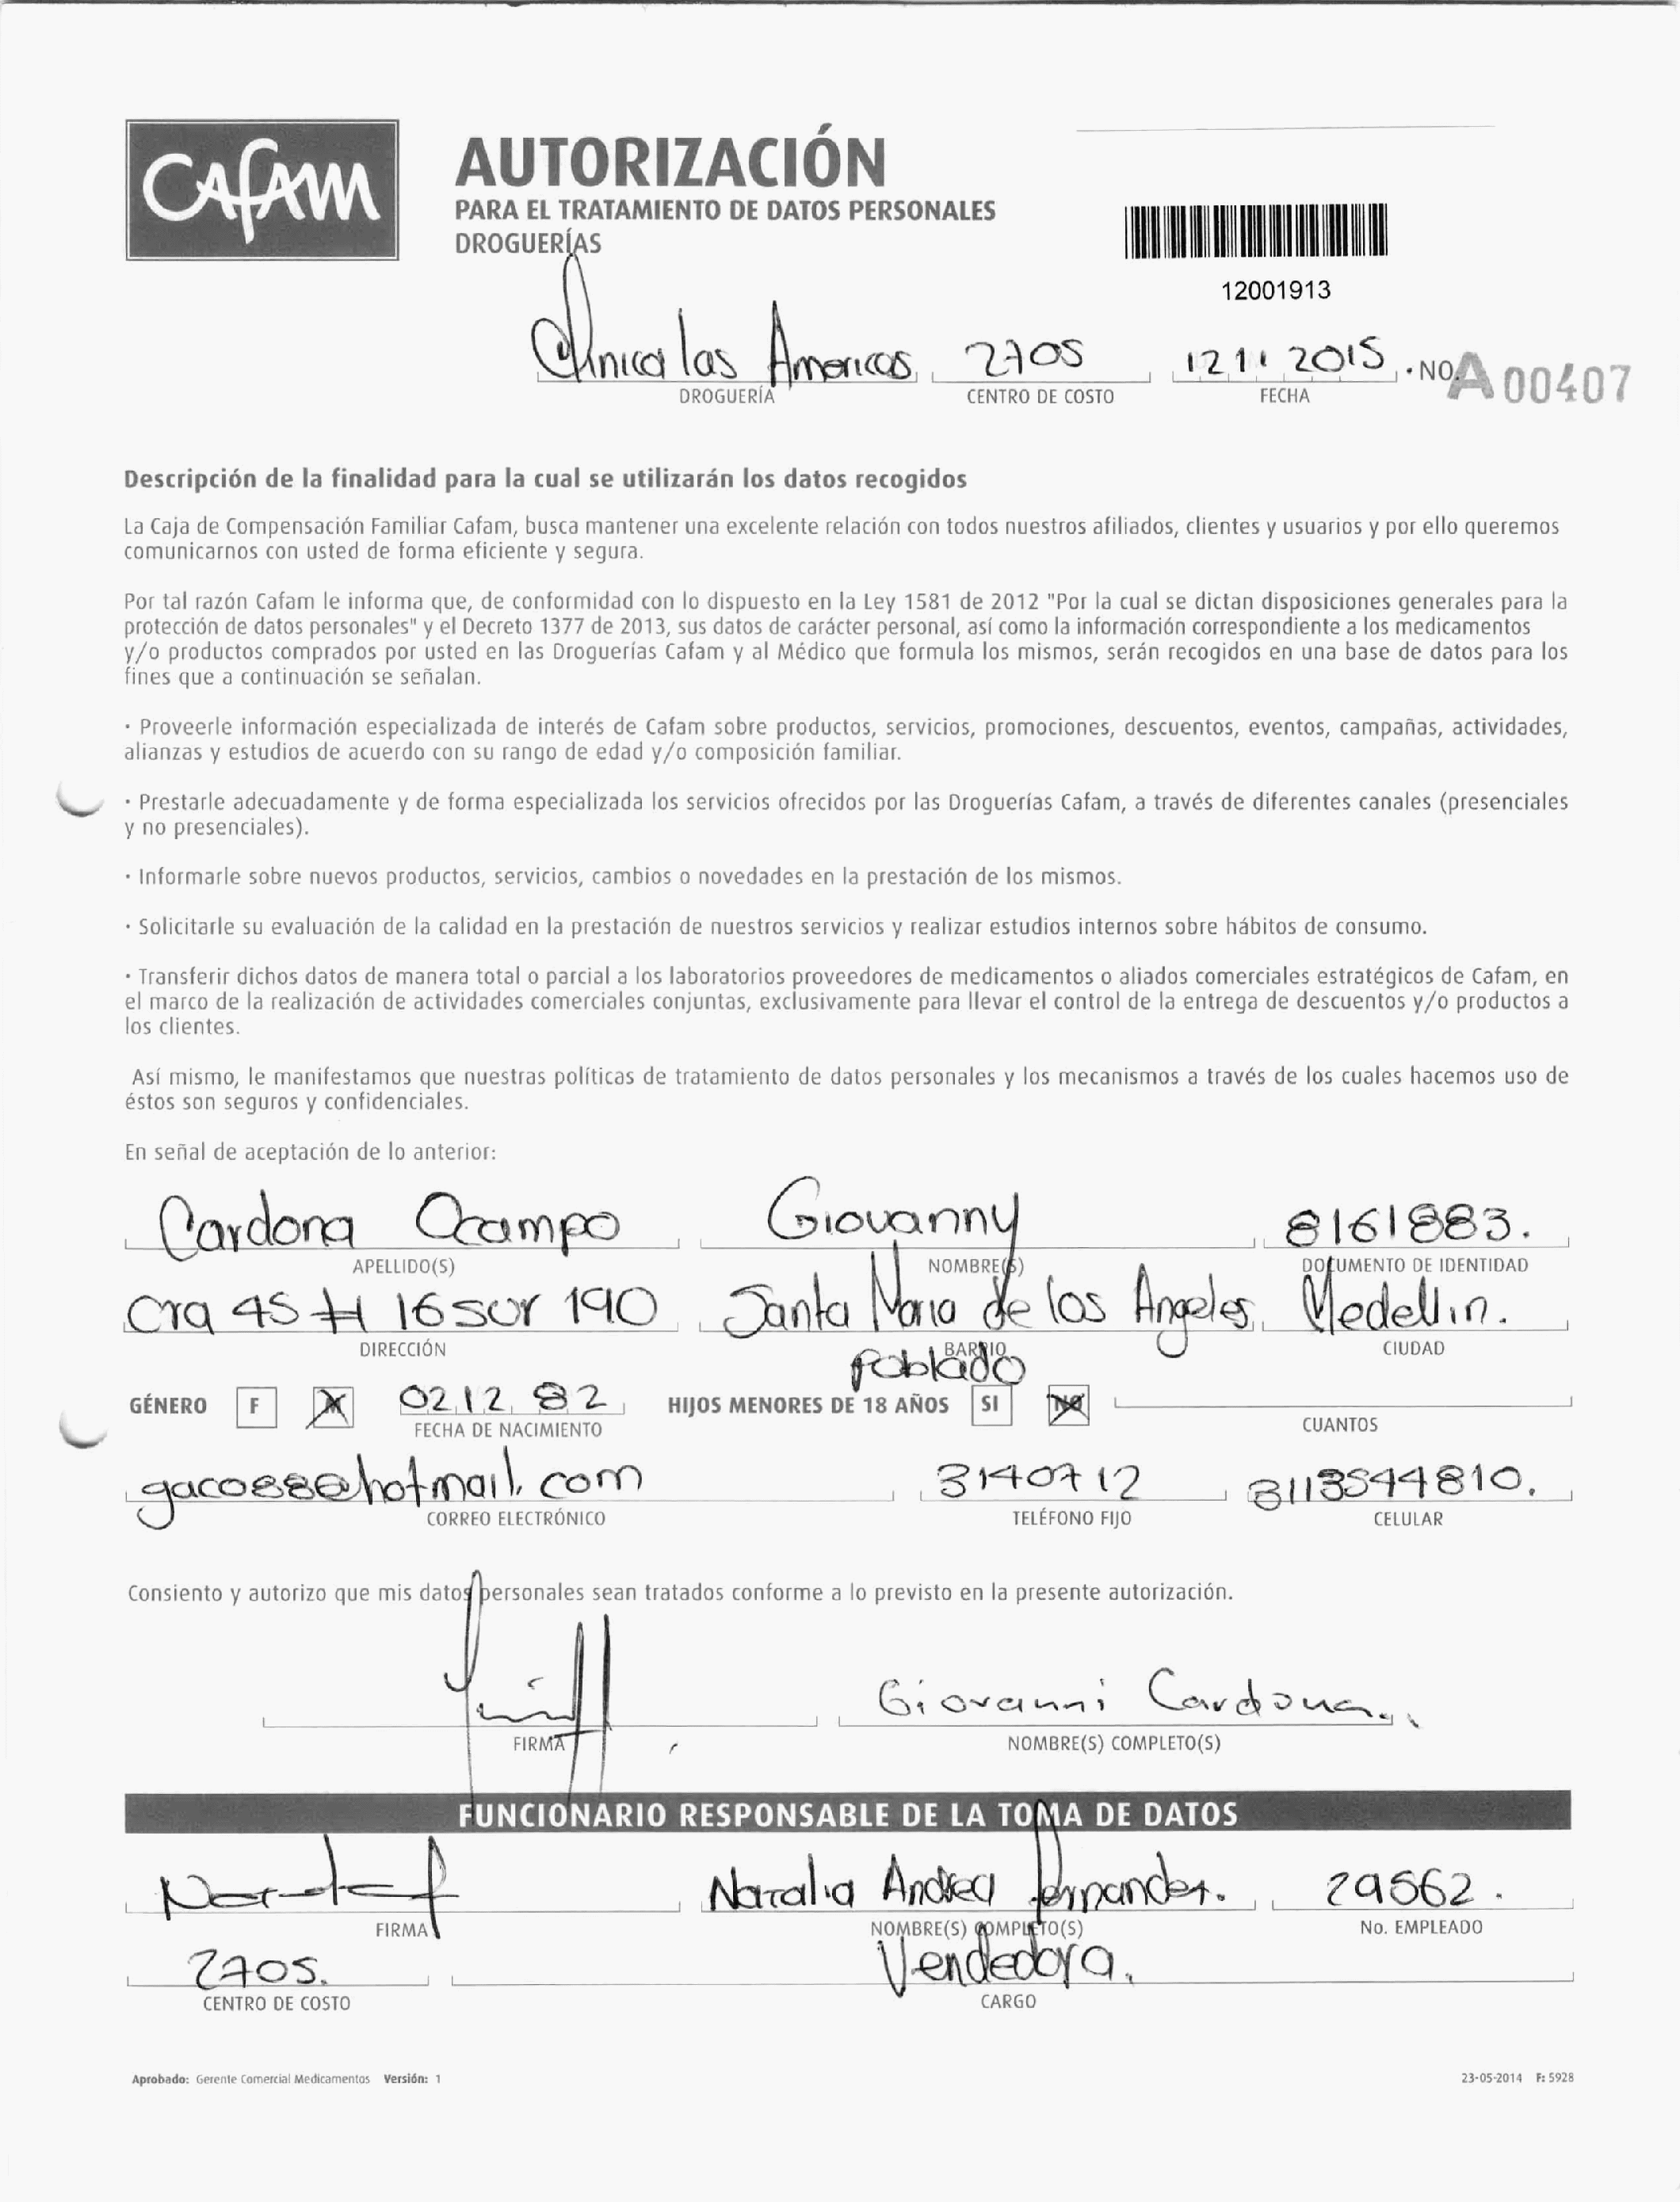 CAFAM
AUTORIZACIÓN
PARA EL TRATAMIENTO DE DATOS PERSONALES
DROGUERÍAS
12001913
Clinica las Americas 2705 12 11 2015 . NO. A 00407
DROGUERÍA CENTRO DE COSTO FECHA
Descripción de la finalidad para la cual se utilizarán los datos recogidos
La Caja de Compensación Familiar Cafam, busca mantener una excelente relación con todos nuestros afiliados, clientes y usuarios y por ello queremos
comunicarnos con usted de forma eficiente y segura.
Por tal razón Cafam le informa que, de conformidad con lo dispuesto en la Ley 1581 de 2012 "Por la cual se dictan disposiciones generales para la
protección de datos personales" y el Decreto 1377 de 2013, sus datos de carácter personal, así como la información correspondiente a los medicamentos
y/o productos comprados por usted en las Droguerías Cafam y al Médico que formula los mismos, serán recogidos en una base de datos para los
fines que a continuación se señalan.
· Proveerle información especializada de interés de Cafam sobre productos, servicios, promociones, descuentos, eventos, campañas, actividades,
alianzas y estudios de acuerdo con su rango de edad y/o composición familiar.
· Prestarle adecuadamente y de forma especializada los servicios ofrecidos por las Droguerías Cafam, a través de diferentes canales (presenciales
y no presenciales).
· Informarle sobre nuevos productos, servicios, cambios o novedades en la prestación de los mismos.
· Solicitarle su evaluación de la calidad en la prestación de nuestros servicios y realizar estudios internos sobre hábitos de consumo.
· Transferir dichos datos de manera total o parcial a los laboratorios proveedores de medicamentos o aliados comerciales estratégicos de Cafam, en
el marco de la realización de actividades comerciales conjuntas, exclusivamente para llevar el control de la entrega de descuentos y/o productos a
los clientes.
Así mismo, le manifestamos que nuestras políticas de tratamiento de datos personales y los mecanismos a través de los cuales hacemos uso de
éstos son seguros y confidenciales.
En señal de aceptación de lo anterior:
Cardona Ocampo Giovanny 8161883.
APELLIDO(S) NOMBRE(S) DOCUMENTO DE IDENTIDAD
Cra 45 # 16 sur 190 Santa Maria de los Angeles Medellin.
DIRECCIÓN BARRIO CIUDAD
Poblado
GÉNERO F M 02 12 82 HIJOS MENORES DE 18 AÑOS SI NO
FECHA DE NACIMIENTO CUANTOS
gaco88@hotmail.com 3140712 3113544810.
CORREO ELECTRÓNICO TELÉFONO FIJO CELULAR
Consiento y autorizo que mis datos personales sean tratados conforme a lo previsto en la presente autorización.
Giovanni Cardona
FIRMA NOMBRE(S) COMPLETO(S)
FUNCIONARIO RESPONSABLE DE LA TOMA DE DATOS
Natalia Andrea fernandez. 29562.
FIRMA NOMBRE(S) COMPLETO(S) No. EMPLEADO
2705. Vendedora.
CENTRO DE COSTO CARGO
Aprobado: Gerente Comercial Medicamentos Versión: 1 23-05-2014 F: 5928